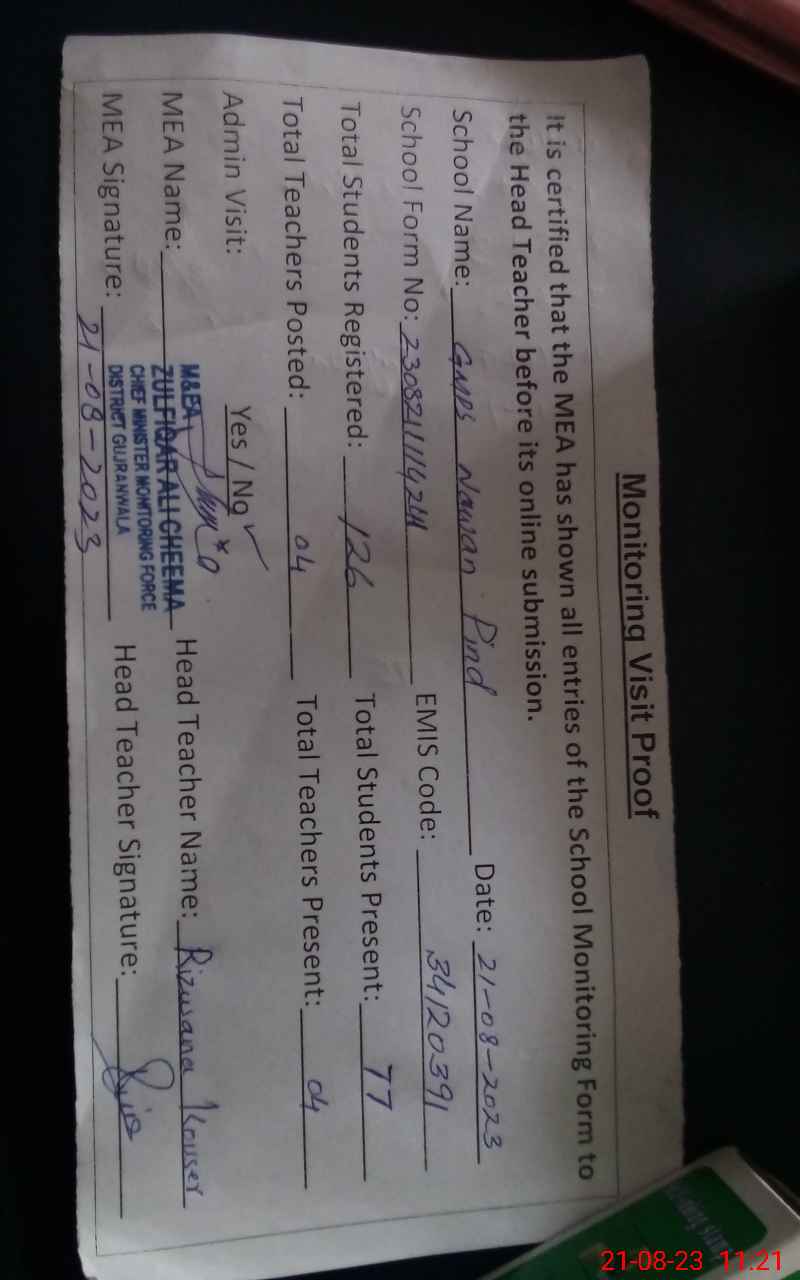 Monitoring Visit Proof
It is certified that the MEA has shown all entries of the School Monitoring Form to
the Head Teacher before its online submission.
School Name: GMPS Nawan Pind Date: 21-08-2023
School Form No: EMIS Code: 34120391
Total Students Registered: 126 Total Students Present: 77
Total Teachers Posted: 04 Total Teachers Present: 04
Admin Visit: Yes / No ✓
M&EA
MEA Name: ZULFIQAR ALI CHEEMA Head Teacher Name: Rizwana Kouser
CHIEF MINISTER MONITORING FORCE
MEA Signature: DISTRICT GUJRANWALA Head Teacher Signature:
21-08-2023
21-08-23 11:21